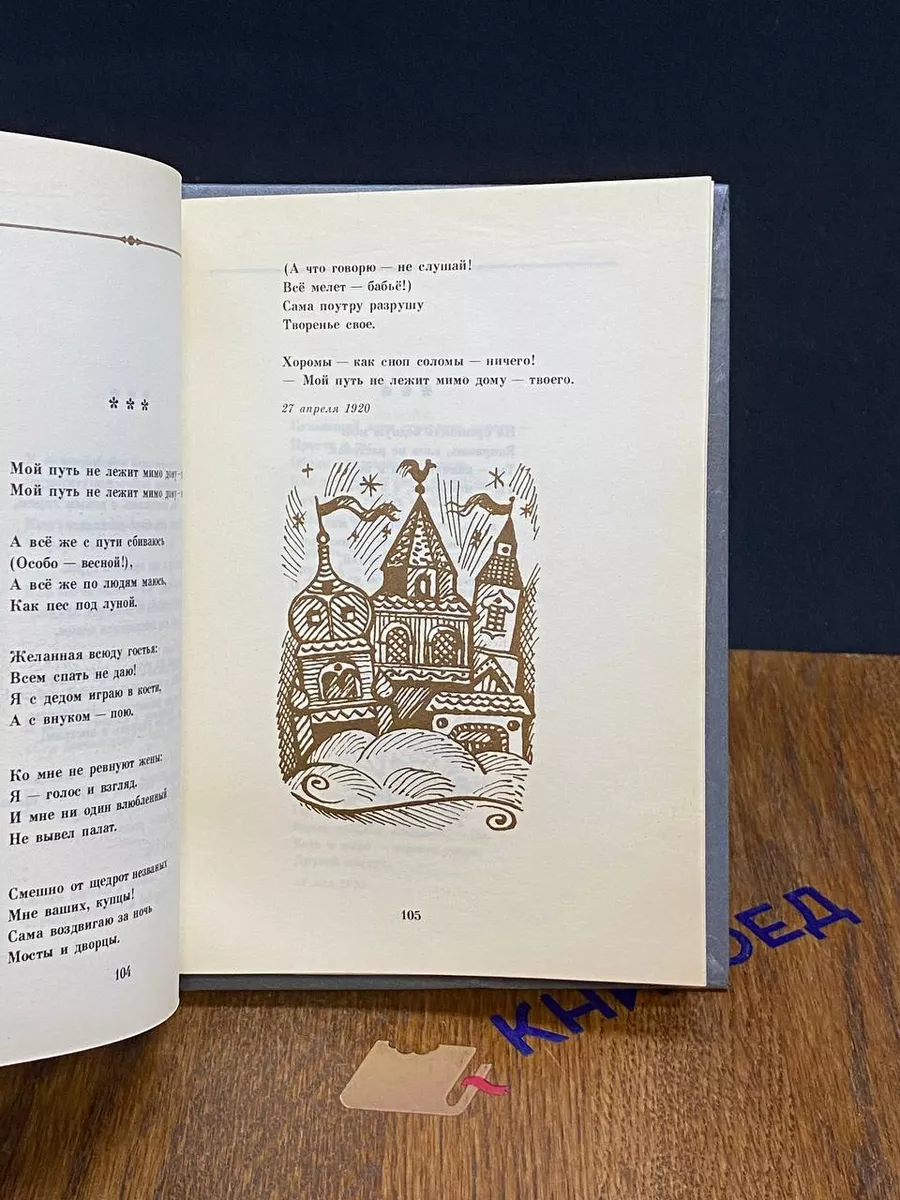 ***
Мой путь не лежит мимо дому-
Мой путь не лежит мимо дому-
А всё же с пути сбиваюсь
(Особо — весной!),
А всё же по людям маюсь,
Как пес под луной.
Желанная всюду гостья:
Всем спать не даю!
Я с дедом играю в кости,
А с внуком — пою.
Ко мне не ревнуют жены:
Я — голос и взгляд.
И мне ни один влюбленный
Не вывел палат.
Смешно от щедрот незваных
Мне ваших, купцы!
Сама воздвигаю за ночь
Мосты и дворцы.
104
(А что говорю — не слушай!
Всё мелет — бабьё!)
Сама поутру разрушу
Творенье свое.
Хоромы — как сноп соломы — ничего!
— Мой путь не лежит мимо дому — твоего.
27 апреля 1920
105